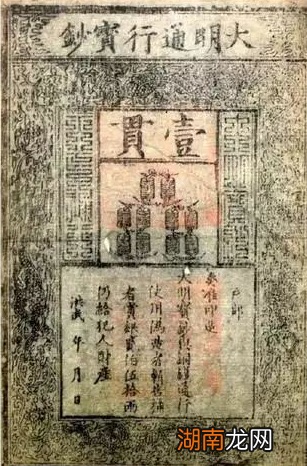 大明通行寶鈔
壹貫
戶部
奏准印造
大明寶鈔與銅錢通行
使用偽造者斬告捕
者賞銀貳佰伍拾兩
仍給犯人財產
洪武 年 月 日
湖南龙网